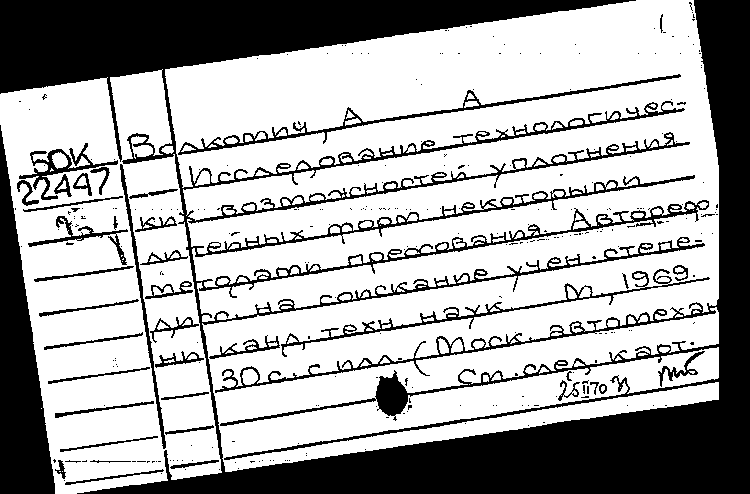 БОК
22447
Волкомич, А А
Исследование технологичес-
ких возможностей уплотнения
литейных форм некоторыми
методами прессования. Автореф.
дисс. на соискание учен. степе-
ни канд. техн. наук. М., 1969.
30 с. с илл. (Моск. автомехан
См. след. карт.
25 II 70